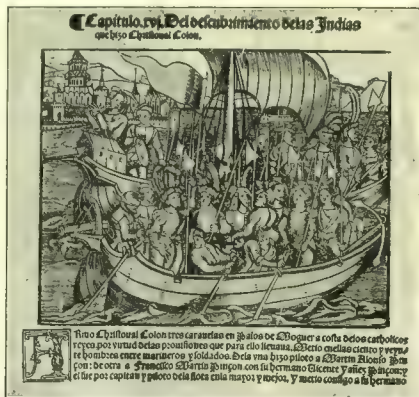 ¶ Capitulo. xvj. Del descubrimiento delas Indias
que hizo Christoual Colon.
ARmo Christoual Colon tres carauelas en Palos de Moguer a costa delos catholicos
reyes por virtud delas prouisiones que para ello lleuaua. Metio enellas ciento y veyn
te hombres entre marineros y soldados. Dela vna hizo piloto a Martin Alonso Pin
çon: de otra a Francisco Martin Pinçon, con su hermano Vicente Yañez Pinçon: y
el fue por capitan y piloto dela flota enla mayor y mejor, y metio consigo a su hermano